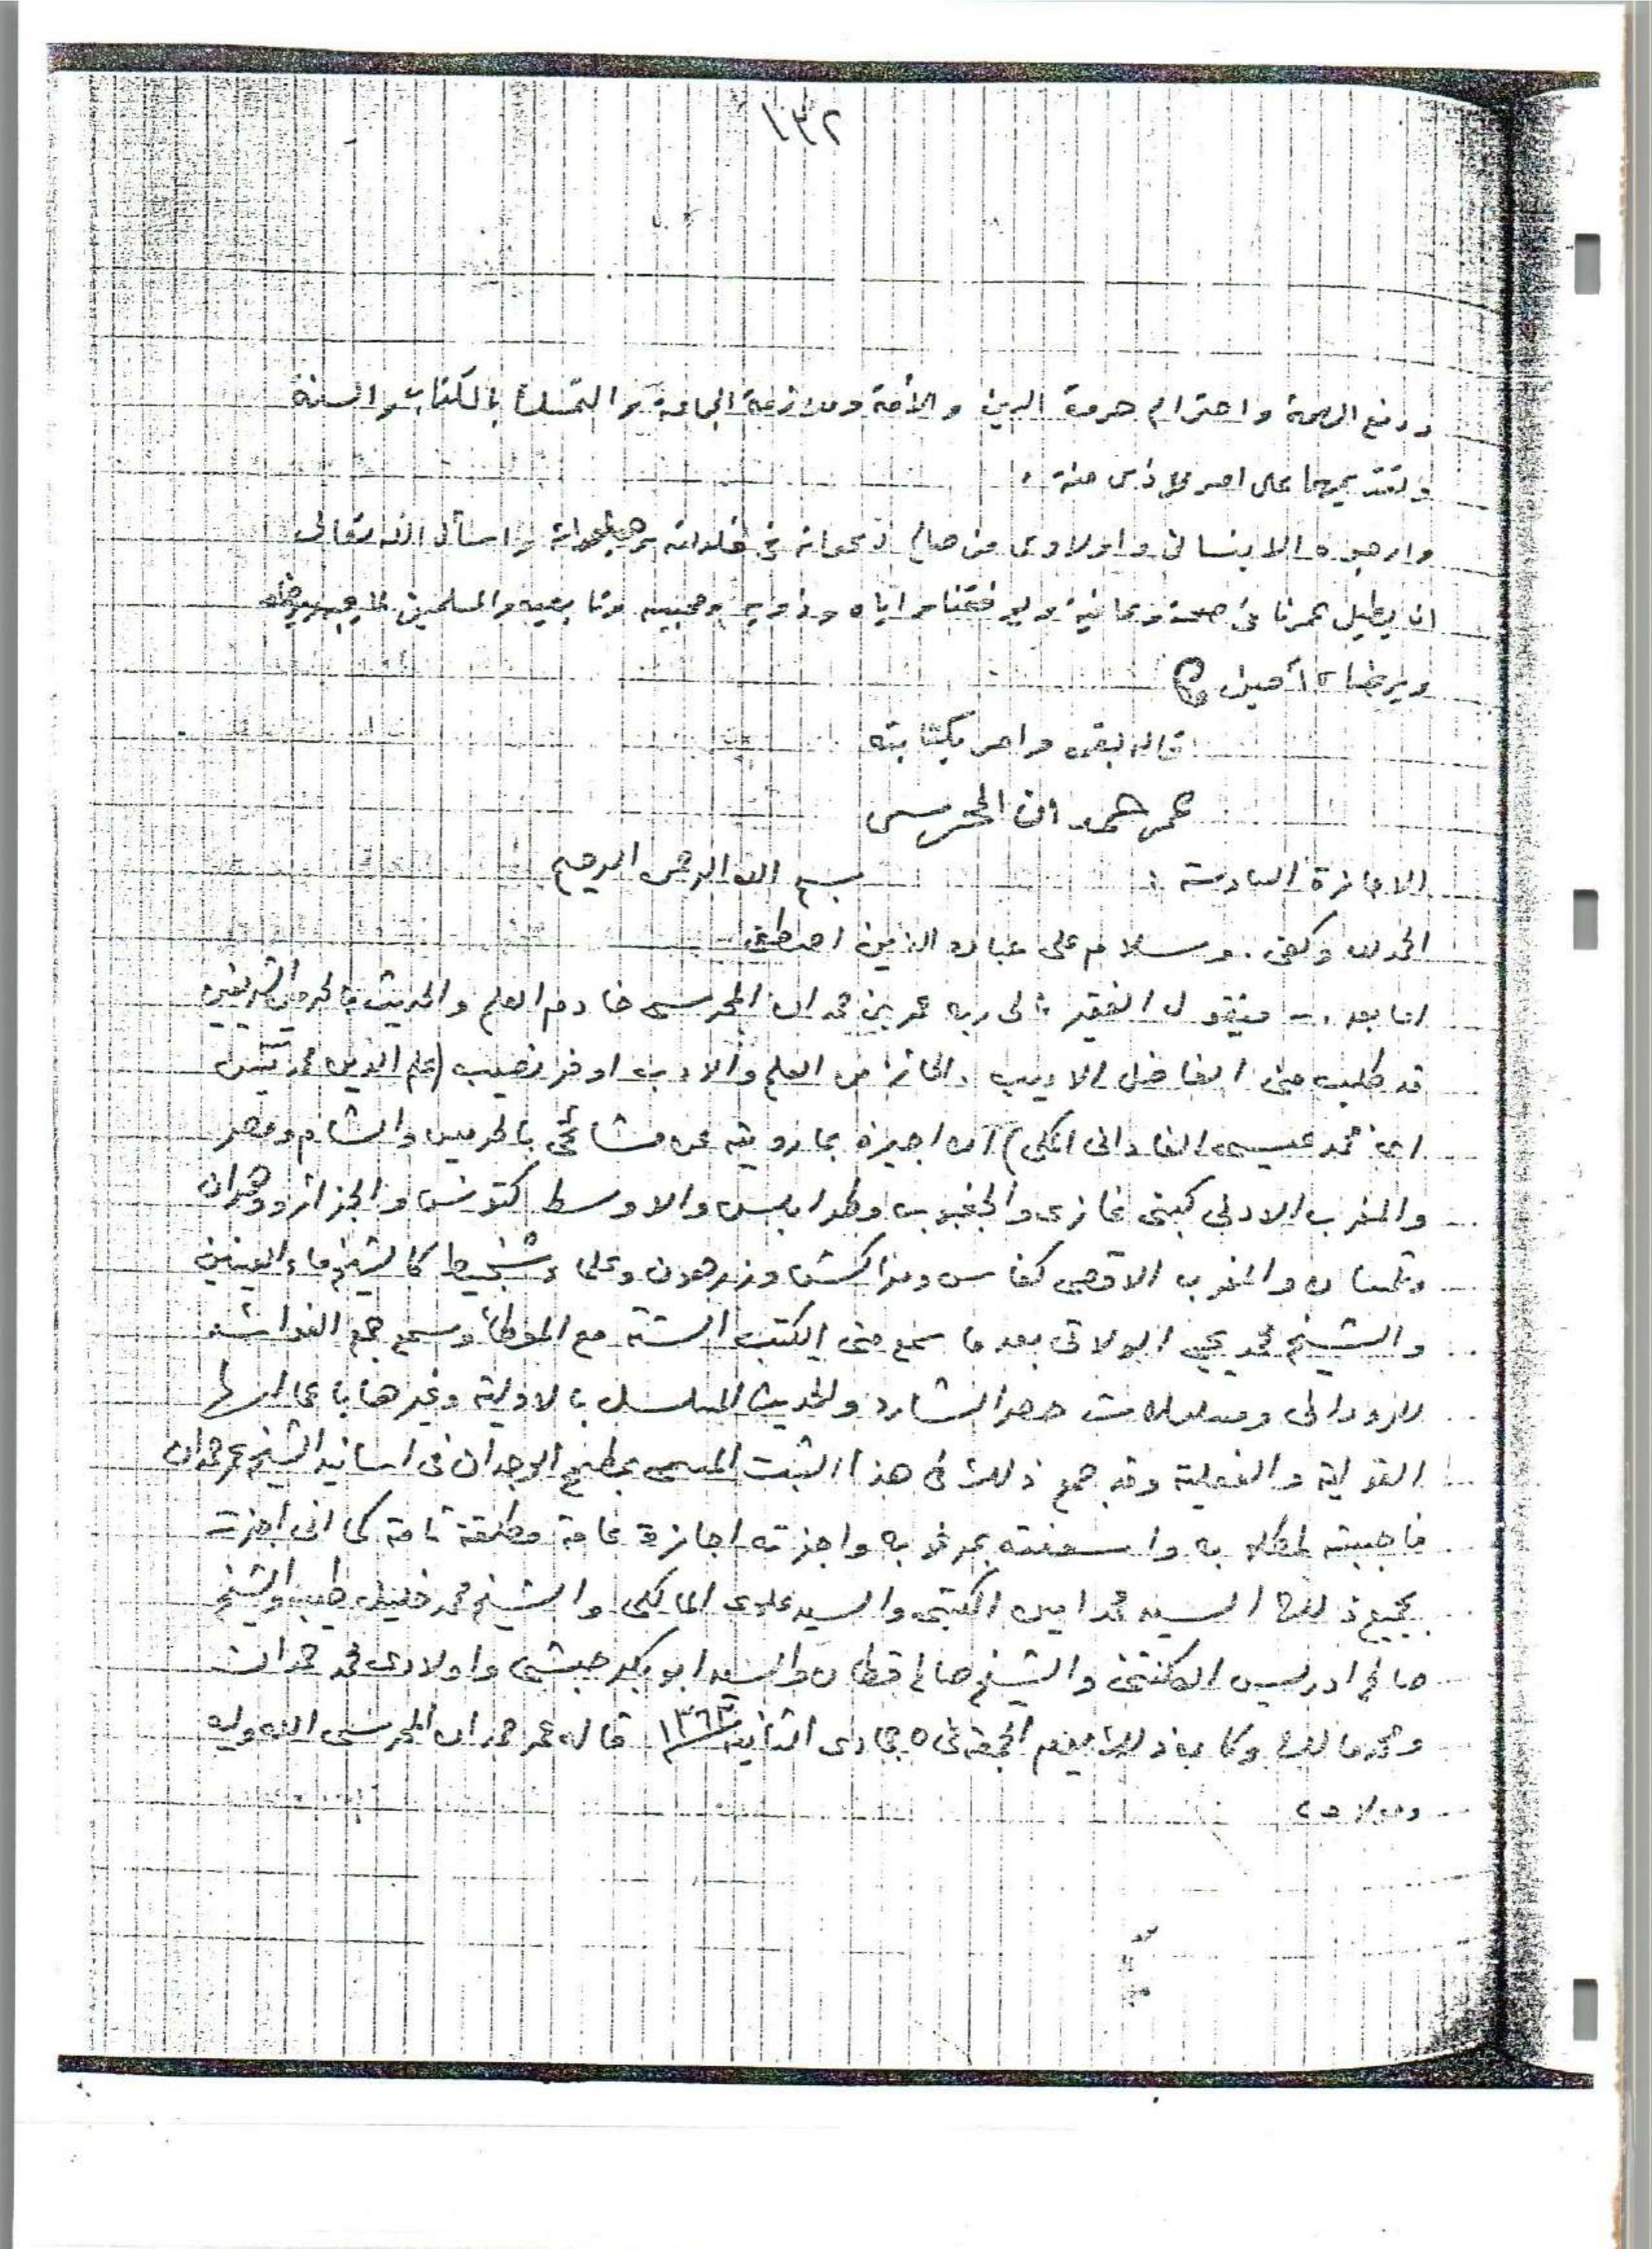 ١٣٢
ورفع الهمة واحترام حرمة الدين والأمة وملازمة الجماعة والتمسك بالكتاب والسنة
وتقديمهما على
وارجوه الا ينساني واولادي من صالح دعواته في خلواته وجلواته واسأل الله تعالى
ان يطيل عمرنا في صحة وعافية ويوفقنا واياه وذويه ومحبيه وتابعيه والمسلمين لما يحبه
ويرضاه آمين
قاله بفمه وامر بكتابته
عمر حمدان المحرسي
الاجازة السادسة : بسم الله الرحمن الرحيم
الحمد لله وكفى . وسلام على عباده الذين اصطفى
اما بعد .- فيقول الفقير الى ربه عمر بن حمدان المحرسي خادم العلم والحديث بالحرمين الشريفين
قد طلب مني الفاضل الاديب . الحائز من العلم والادب اوفر نصيب (علم الدين محمد يٰسين
ابن محمد عيسى الفاداني المكي) ان اجيزه بما رويته عن مشائخي بالحرمين والشام ومصر
والمغرب الادنى كبني غازي والجغبوب وطرابلس والاوسط كتونس والجزائر ووهران
وتلمسان والمغرب الاقصى كفاس ومراكش وزرهون وعلماء شنجيط كالشيخ ماء العينين
والشيخ محمد يحيى الولاتي بعد ما سمع مني الكتب الستة مع الموطأ وسمع جمع الفوائد
للروداني ومسلسلات حصر الشارد والحديث المسلسل بالاولية وغيرها باعمالها
القولية والفعلية وقد جمع ذلك في هذا الثبت المسمى بمطمح الوجدان في اسانيد الشيخ عمر حمدان
فاجبته لمطلابه واسعفته بمرغابه واجزته اجازة عامة مطلقة تامة كما اني اجزت
بجميع ذلك السيد محمد امين الكتبي والسيد علوي المالكي والشيخ محمد خليل طيب والشيخ
صالح ادريس الكلنتني والشيخ صالح قطان والسيد ابو بكر حبشي واولادي محمد حمدان
ومحمد مالك وكان ذلك يوم الجمعة في ٥ جمادى الثانية ١٣٦٣ قاله عمر حمدان المحرسي الله وليه
ومولاه